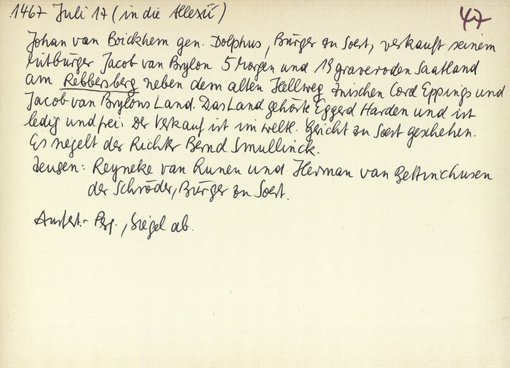 1467 Juli 17 (in die Allexii) 47
Johan van Brickhem gen. Dolphus, Bürger zu Soest, verkauft seinem
Mitbürger Jacob van Brylon 5 Morgen und 13 graveroden Saatland
am Rebbersberg neben dem alten Hellweg zwischen Cord Eppings und
Jacob van Brylons Land. Das Land gehörte Eggerd Harden und ist
ledig und frei. Der Verkauf ist im weltl. Gericht zu Soest geschehen.
Es siegelt der Richter Bernd Smullinck.
Zeugen: Reyneke van Runen und Herman van Bettinchusen
der Schröder, Bürger zu Soest.
Ausfert.- Perg., Siegel ab.